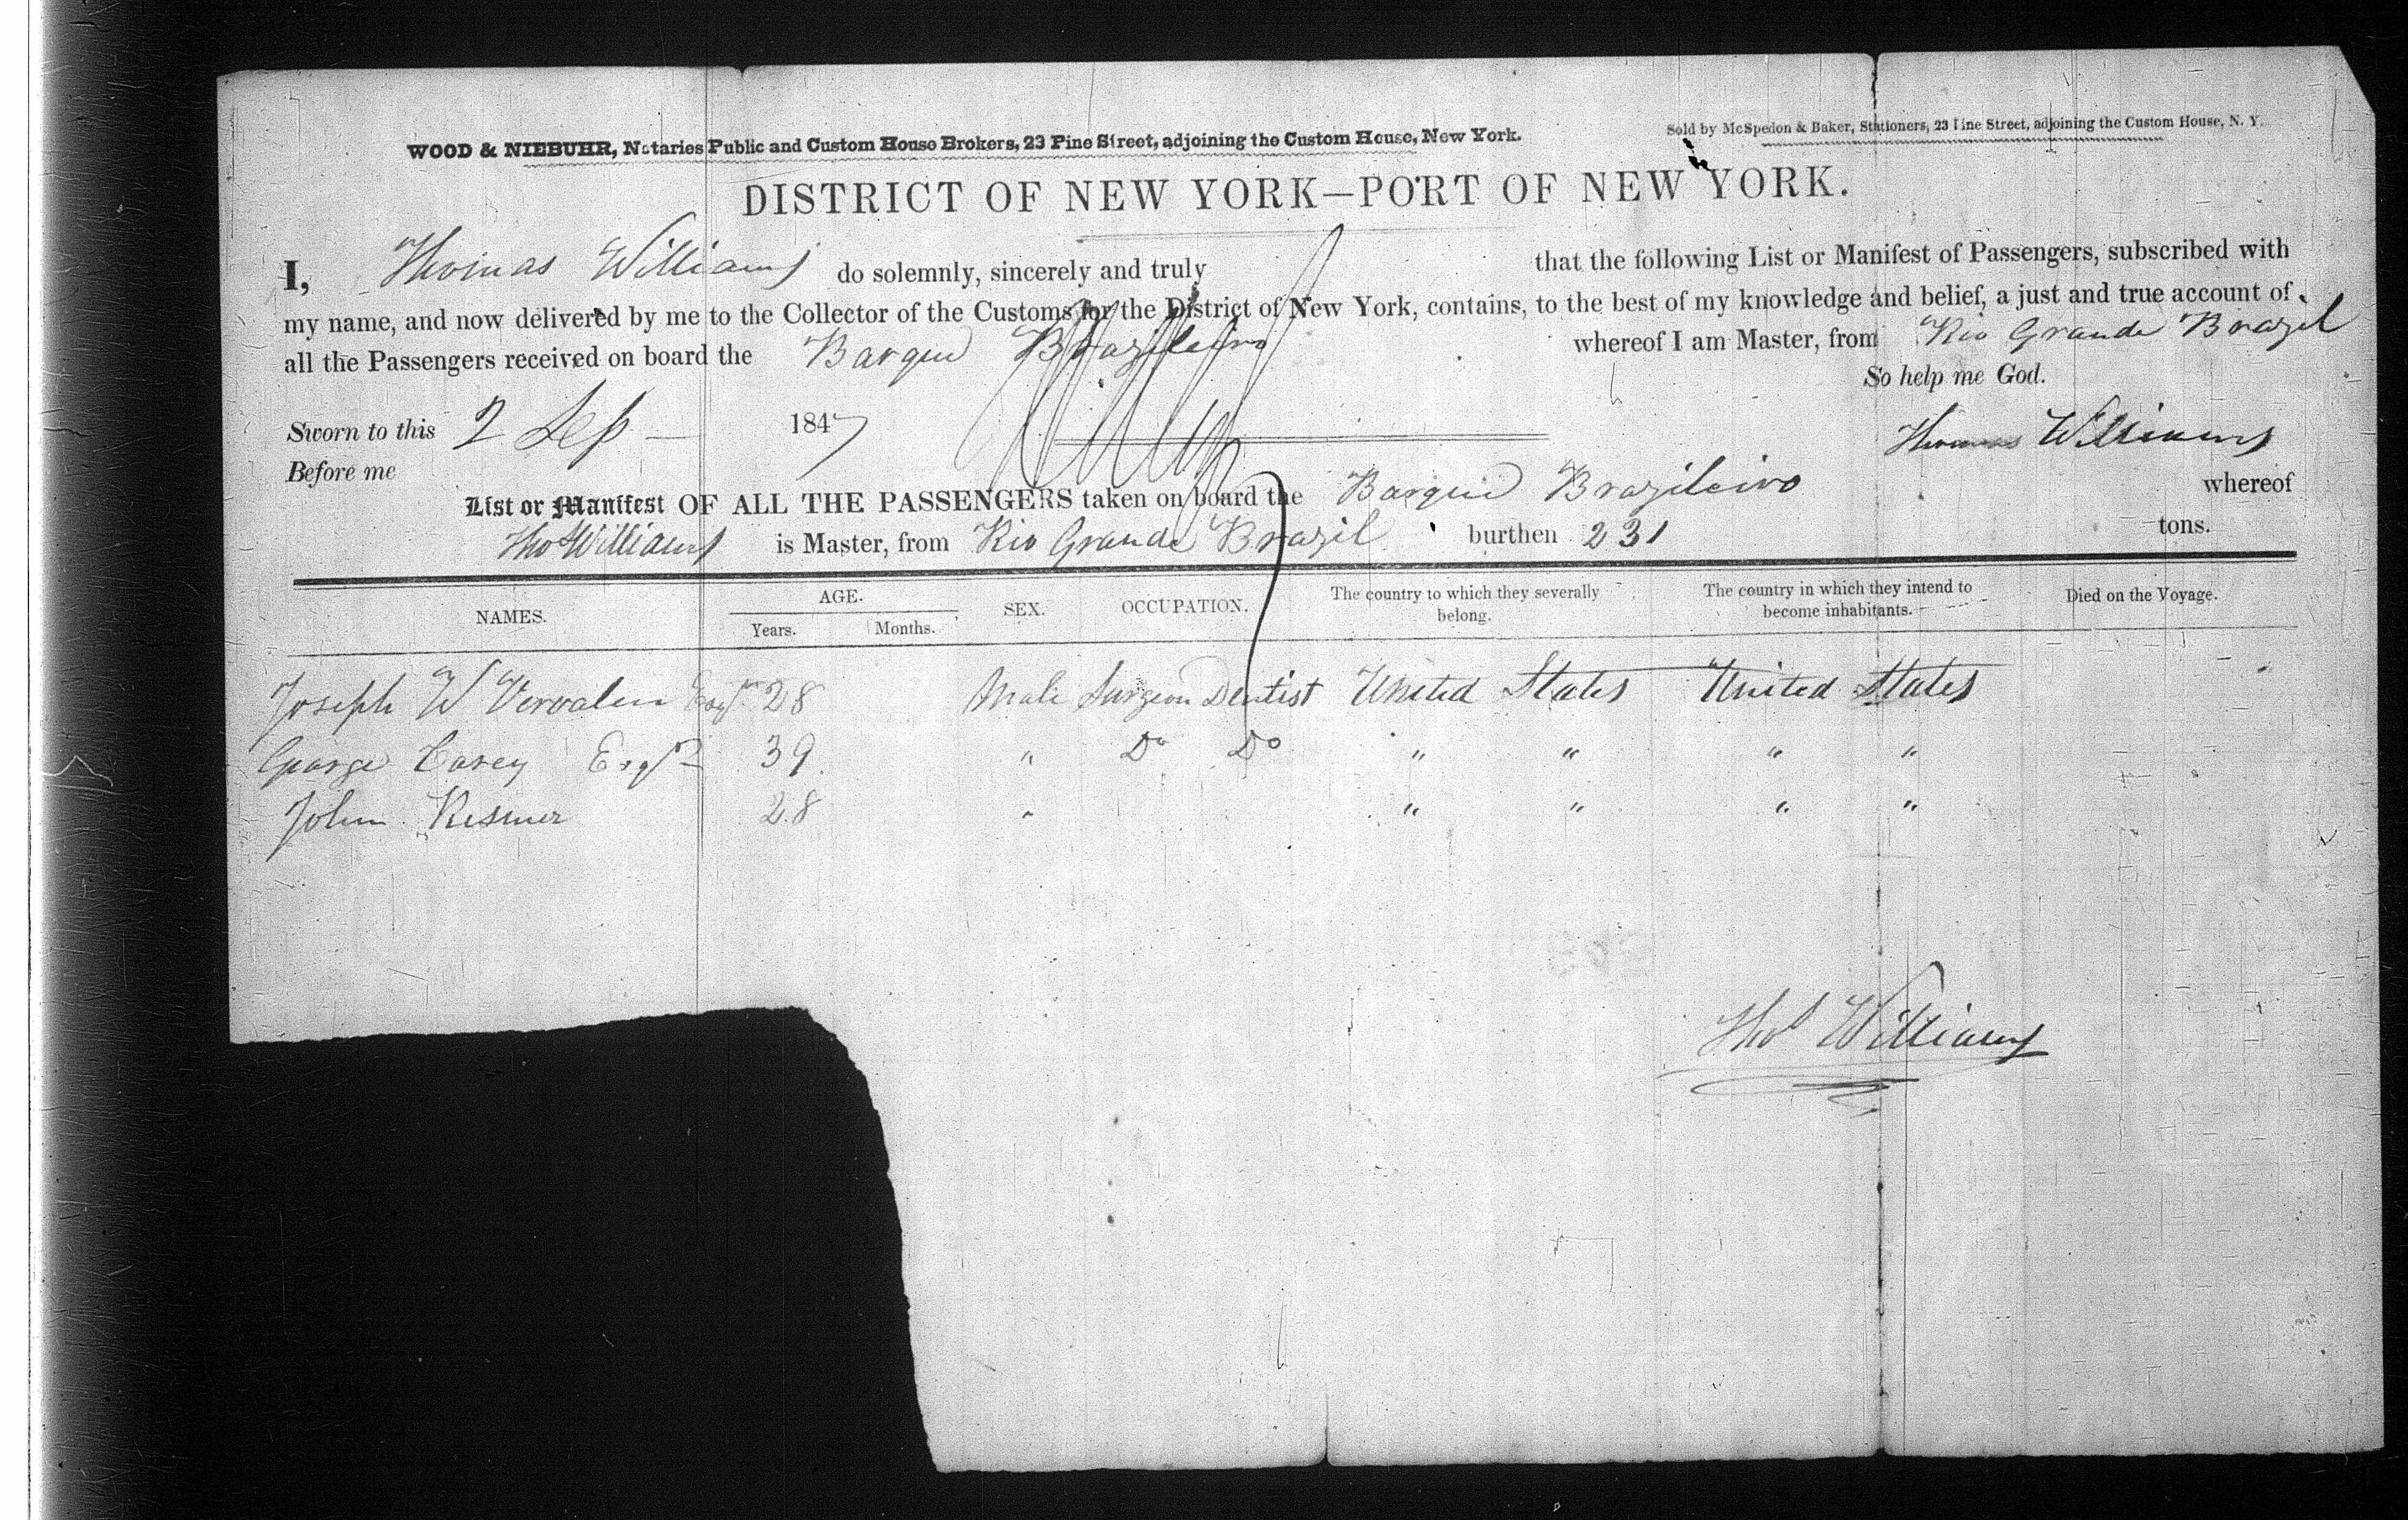 WOOD & NIEBUHR, Notaries Public and Custom House Brokers, 23 Pine Street, adjoining the Custom House, New York.
Sold by McSpedon & Baker, Stationers, 23 Pine Street, adjoining the Custom House, N. Y.
DISTRICT OF NEW YORK—PORT OF NEW YORK.
I, Thomas Williams do solemnly, sincerely and truly that the following List or Manifest of Passengers, subscribed with
my name, and now delivered by me to the Collector of the Customs for the District of New York, contains, to the best of my knowledge and belief, a just and true account of
all the Passengers received on board the Barque Brazileiro whereof I am Master, from Rio Grande Brazil
So help me God.
Sworn to this 2 Sep 1847
Thomas Williams
Before me
List or Manifest OF ALL THE PASSENGERS taken on board the Barque Brazileiro whereof
Tho Williams is Master, from Rio Grande Brazil burthen 231 tons.
NAMES. AGE. SEX. OCCUPATION. The country to which they severally belong. The country in which they intend to become inhabitants. Died on the Voyage.
Years. Months.
Joseph W Vervalen Esqr 28 Male Surgeon Dentist United States United States
George Carey Esqr 39 " Do Do " " " "
John 28 " " " " "
Thos Williams